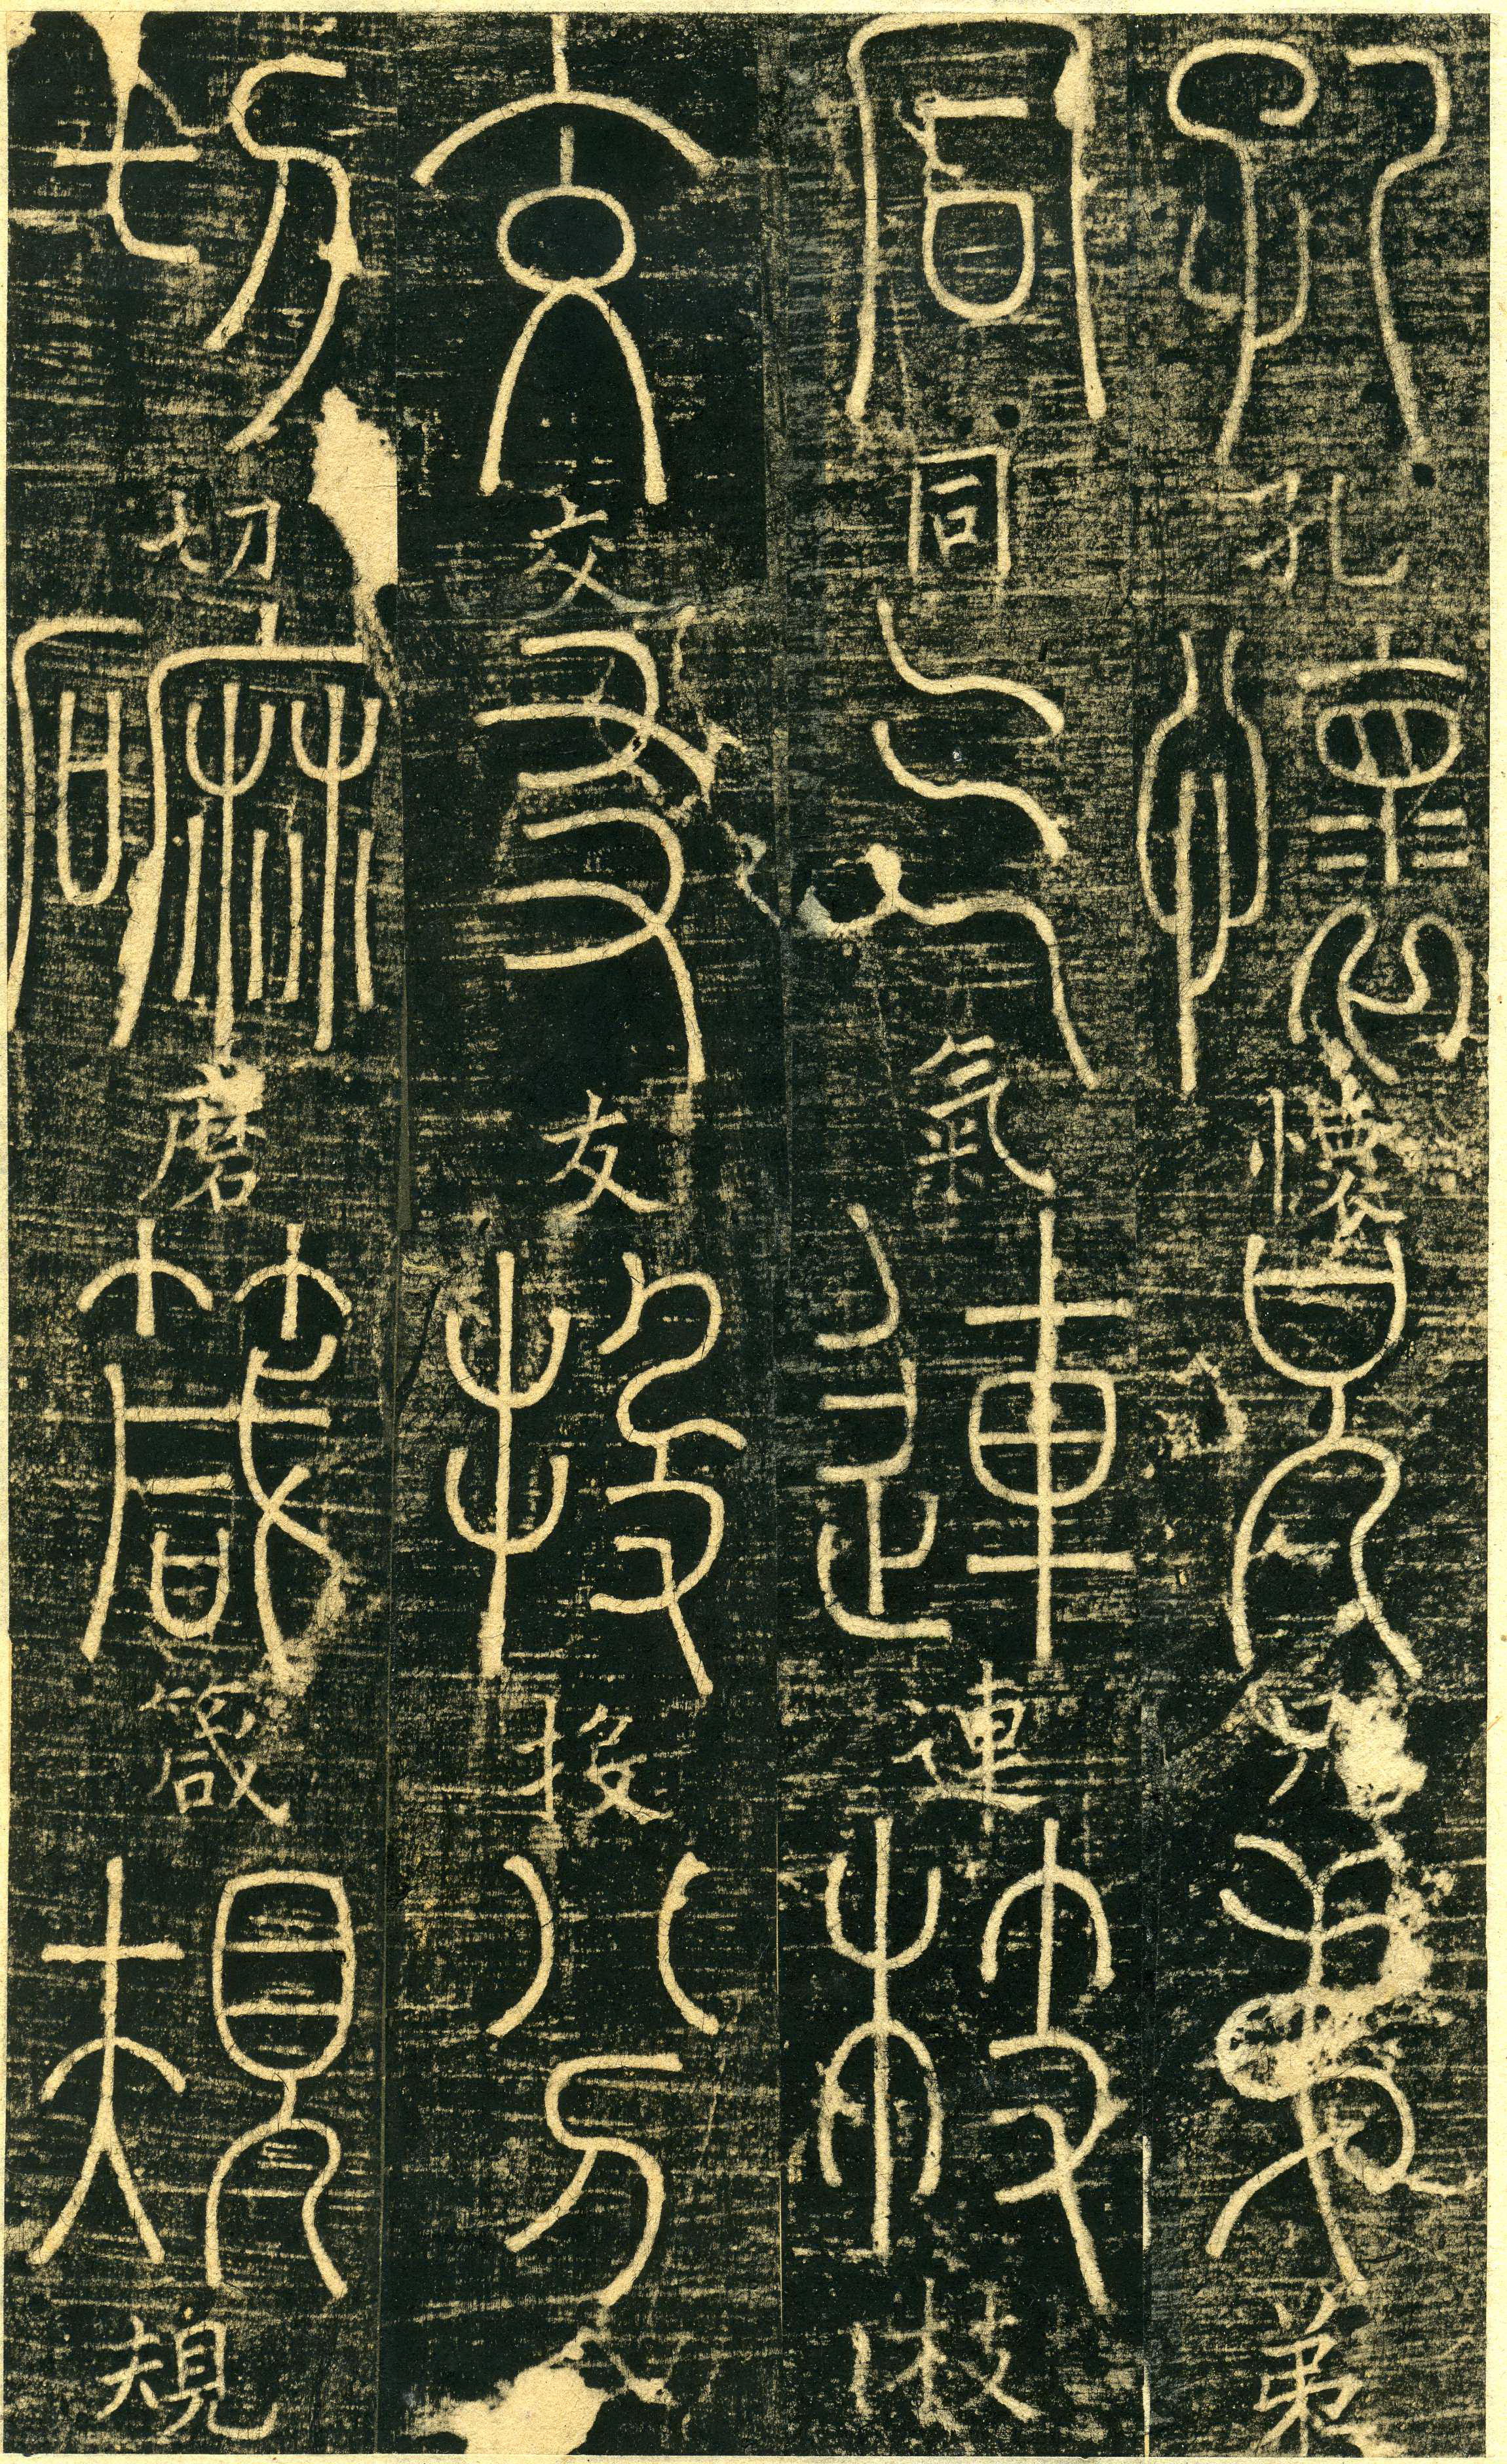 孔懷兄弟
同氣連枝
交友投分
切磨箴規